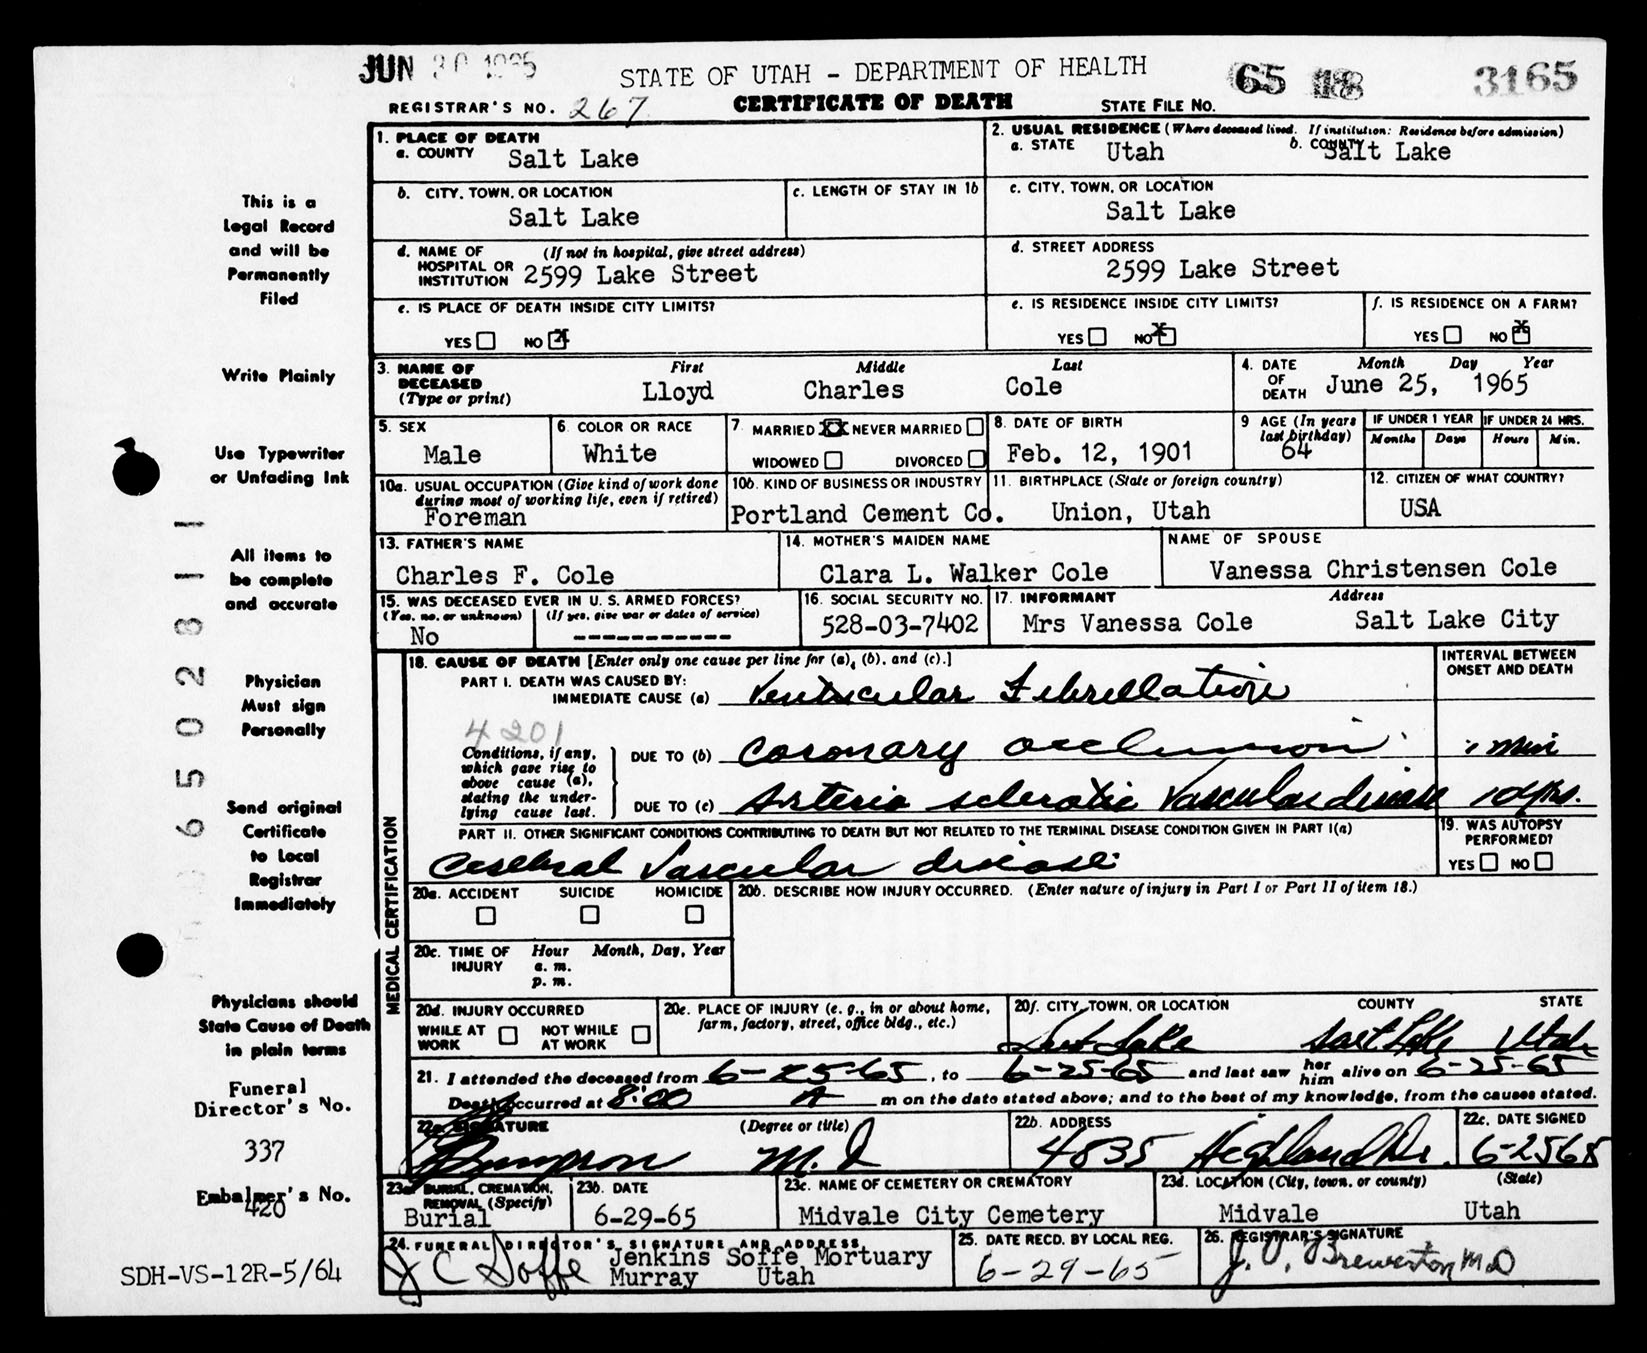 JUN 30 1965
STATE OF UTAH - DEPARTMENT OF HEALTH
65 18 3165
REGISTRAR'S NO. 267 CERTIFICATE OF DEATH STATE FILE NO.
1. PLACE OF DEATH
a. COUNTY Salt Lake
2. USUAL RESIDENCE (Where deceased lived. If institution: Residence before admission)
a. STATE Utah b. COUNTY Salt Lake
b. CITY, TOWN, OR LOCATION
Salt Lake
c. LENGTH OF STAY IN 1b
c. CITY, TOWN, OR LOCATION
Salt Lake
d. NAME OF HOSPITAL OR INSTITUTION (If not in hospital, give street address)
2599 Lake Street
d. STREET ADDRESS
2599 Lake Street
e. IS PLACE OF DEATH INSIDE CITY LIMITS?
YES NO X
e. IS RESIDENCE INSIDE CITY LIMITS?
YES NO X
f. IS RESIDENCE ON A FARM?
YES NO X
3. NAME OF DECEASED (Type or print)
First Middle Last
Lloyd Charles Cole
4. DATE OF DEATH Month Day Year
June 25, 1965
5. SEX
Male
6. COLOR OR RACE
White
7. MARRIED XX NEVER MARRIED
WIDOWED DIVORCED
8. DATE OF BIRTH
Feb. 12, 1901
9 AGE (In years last birthday)
64
IF UNDER 1 YEAR
Months Days
IF UNDER 24 HRS.
Hours Min.
10a. USUAL OCCUPATION (Give kind of work done during most of working life, even if retired)
Foreman
10b. KIND OF BUSINESS OR INDUSTRY
Portland Cement Co.
11. BIRTHPLACE (State or foreign country)
Union, Utah
12. CITIZEN OF WHAT COUNTRY?
USA
13. FATHER'S NAME
Charles F. Cole
14. MOTHER'S MAIDEN NAME
Clara L. Walker Cole
NAME OF SPOUSE
Vanessa Christensen Cole
15. WAS DECEASED EVER IN U. S. ARMED FORCES?
(Yes, no, or unknown) (If yes, give war or dates of service)
No ------------
16. SOCIAL SECURITY NO.
528-03-7402
17. INFORMANT Address
Mrs Vanessa Cole Salt Lake City
MEDICAL CERTIFICATION
18. CAUSE OF DEATH [Enter only one cause per line for (a), (b), and (c).]
INTERVAL BETWEEN ONSET AND DEATH
PART I. DEATH WAS CAUSED BY:
IMMEDIATE CAUSE (a) Ventricular Fibrellation
4201
Conditions, if any, which gave rise to above cause (a), stating the under-lying cause last.
DUE TO (b) Coronary occlusion 1 min
DUE TO (c) Arterio sclerotic Vascular disease 10 yrs.
PART II. OTHER SIGNIFICANT CONDITIONS CONTRIBUTING TO DEATH BUT NOT RELATED TO THE TERMINAL DISEASE CONDITION GIVEN IN PART I(a)
Cerebral Vascular disease
19. WAS AUTOPSY PERFORMED?
YES NO
20a. ACCIDENT SUICIDE HOMICIDE
20b. DESCRIBE HOW INJURY OCCURRED. (Enter nature of injury in Part I or Part II of item 18.)
20c. TIME OF INJURY Hour Month, Day, Year
a. m.
p. m.
20d. INJURY OCCURRED
WHILE AT WORK NOT WHILE AT WORK
20e. PLACE OF INJURY (e. g., in or about home, farm, factory, street, office bldg., etc.)
20f. CITY, TOWN, OR LOCATION COUNTY STATE
Salt Lake Salt Lake Utah
21. I attended the deceased from 6-25-65, to 6-25-65 and last saw her him alive on 6-25-65
Death occurred at 8:00 A m on the date stated above; and to the best of my knowledge, from the causes stated.
22a. SIGNATURE (Degree or title)
M.D
22b. ADDRESS
4835 Highland Dr.
22c. DATE SIGNED
6-25 65
23a. BURIAL, CREMATION, REMOVAL (Specify)
Burial
23b. DATE
6-29-65
23c. NAME OF CEMETERY OR CREMATORY
Midvale City Cemetery
23d. LOCATION (City, town, or county) (State)
Midvale Utah
24. FUNERAL DIRECTOR'S SIGNATURE AND ADDRESS
J C Soffe Jenkins Soffe Mortuary
Murray Utah
25. DATE RECD. BY LOCAL REG.
6-29-65
26. REGISTRAR'S SIGNATURE
J. O. Brewerton MD
This is a
Legal Record
and will be
Permanently
Filed
Write Plainly
Use Typewriter
or Unfading Ink
All items to
be complete
and accurate
Physician
Must sign
Personally
Send original
Certificate
to Local
Registrar
Immediately
Physicians should
State Cause of Death
in plain terms
Funeral
Director's No.
337
Embalmer's No.
420
SDH-VS-12R-5/64